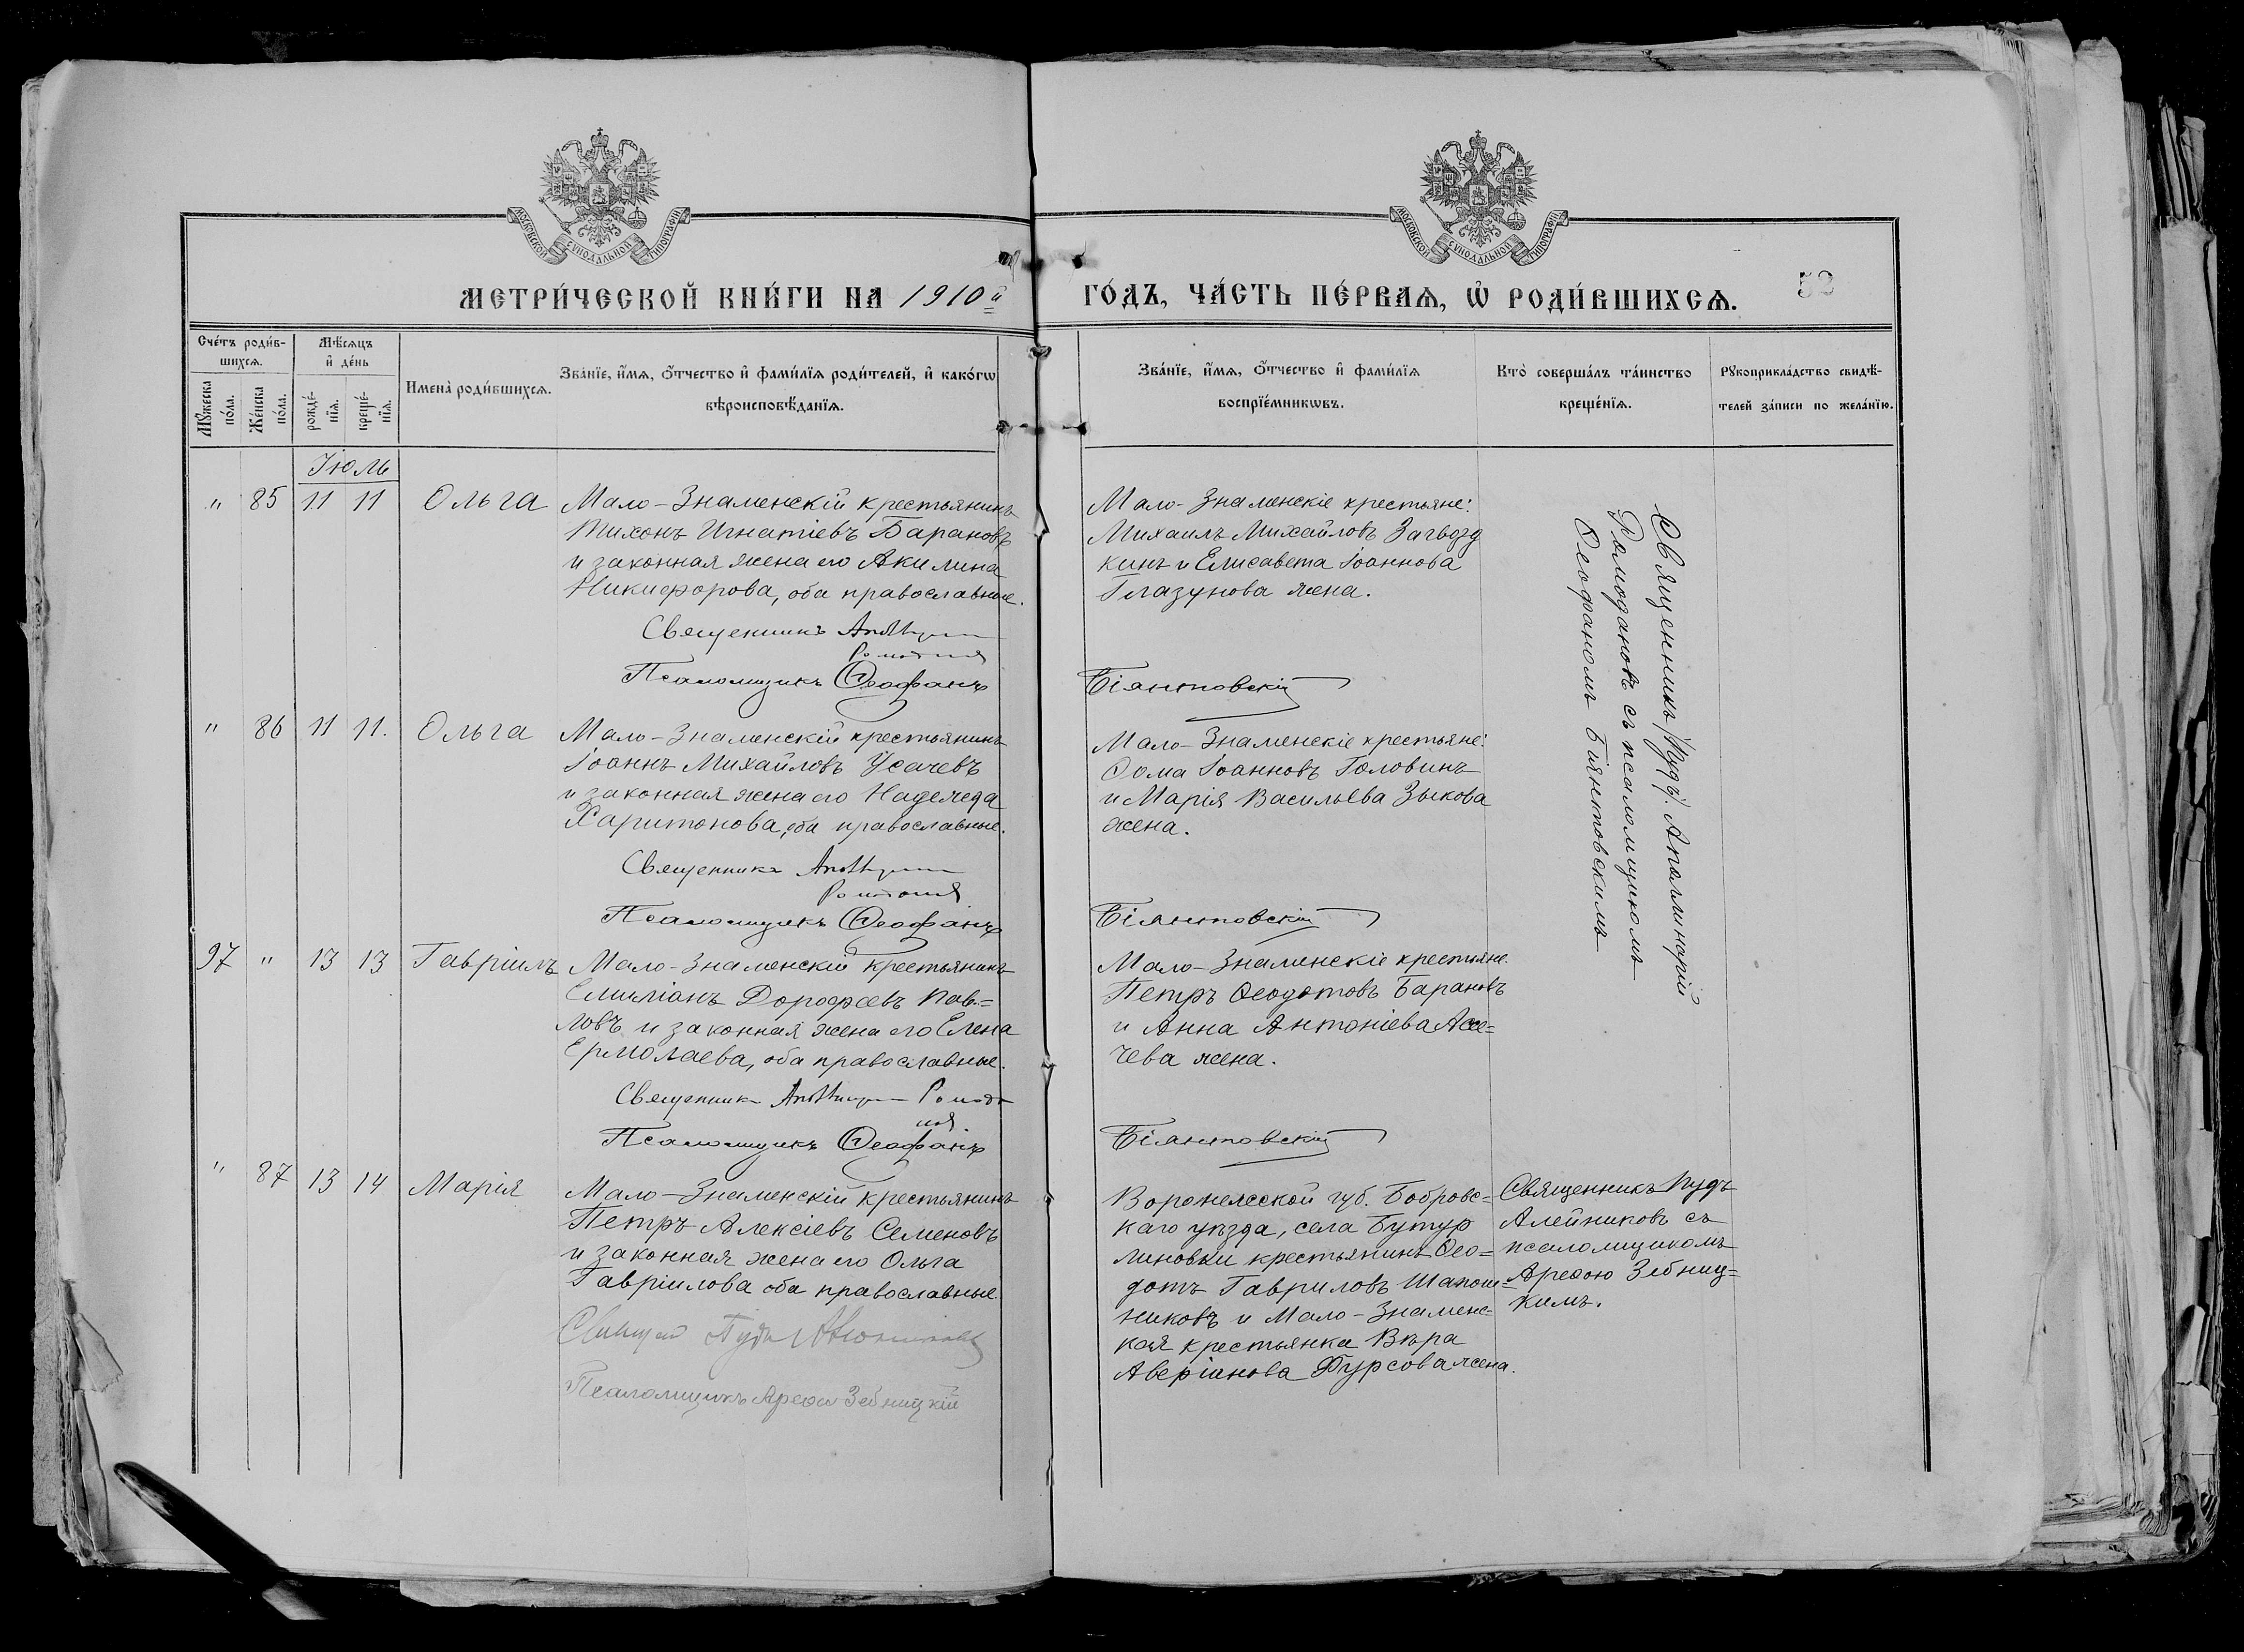 МОСКОВСКОЙ СѴНОДАЛЬНОЙ ТИПОГРАФІИ
МОСКОВСКОЙ СѴНОДАЛЬНОЙ ТИПОГРАФІИ
МЕТРИ́ЧЕСКОЙ КНИ́ГИ НА 1910й
ГО́ДЪ, ЧА́СТЬ ПЕ́РВАѦ, Ѡ҆ РОДИ́ВШИХСѦ.
52
Сче́тъ роди́в-
шихсѧ.
Мꙋ́жеска по́ла.
Же́нска по́ла.
Мѣ́сѧцъ
и҆ де́нь
рожде́-
нїѧ.
креще́-
нїѧ.
Имена̀ роди́вшихсѧ.
Зва́нїе, и҆́мѧ, ѻ҆́тчество и҆ фами́лїѧ роди́телей, и҆ како́гѡ
вѣроисповѣ́данїѧ.
Зва́нїе, и҆́мѧ, ѻ҆́тчество и҆ фами́лїѧ
воспрїе́мникѡвъ.
Кто̀ соверша́лъ та́инство
креще́нїѧ.
Рꙋкоприкла́дство свидѣ́-
телей за́писи по жела́нїю.
Іюль
" 85 11 11 Ольга
Мало-Знаменскій крестьянинъ
Тихонъ Игнатіевъ Барановъ
и законная жена его Акилина
Никифорова, оба православные.
Священникъ
Псаломщикъ Ѳеофанъ
Мало-Знаменскіе крестьяне:
Михаилъ Михайловъ Загвозд
кинъ и Елисавета Іоаннова
Глазунова жена.
Біянтовскій
Священникъ Аполлинарій
Ромодановъ съ псаломщикомъ
Ѳеофаномъ Біянтовскимъ
" 86 11 11. Ольга
Мало-Знаменскій крестьянинъ
Іоаннъ Михайловъ Усачевъ
и законная жена его Надежда
Харитонова, оба православные.
Священникъ
Псаломщикъ Ѳеофанъ
Мало-Знаменскіе крестьяне:
Ѳома Іоанновъ Головинъ
и Марія Васильева Зыкова
жена.
Біянтовскій
97 " 13 13 Гавріилъ
Мало-Знаменскій крестьянинъ
Емиліанъ Дорофеевъ Пав=
ловъ и законная жена его Елена
Ермолаева, оба православные.
Священникъ
Псаломщикъ Ѳеофанъ
Мало-Знаменскіе крестьяне
Петръ Ѳеодотовъ Барановъ
и Анна Антоніева
чева жена.
Біянтовскій
" 87 13 14 Марія
Мало-Знаменскій крестьянинъ
Петръ Алексіевъ Семеновъ
и законная жена его Ольга
Гавріилова оба православные
Пудъ
Псаломщикъ Ареѳа Зебницкій
Воронежской губ. Бобровс=
каго уѣзда, села Бутур
линовки крестьянинъ Ѳео=
дотъ Гавриловъ Шапош=
никовъ и Мало-Знаменс=
кая крестьянка Вѣра
Аверіанова Фурсова жена.
Священникъ Пудъ
Алейниковъ съ
псаломщикомъ
Ареѳою Зебниц=
кимъ.